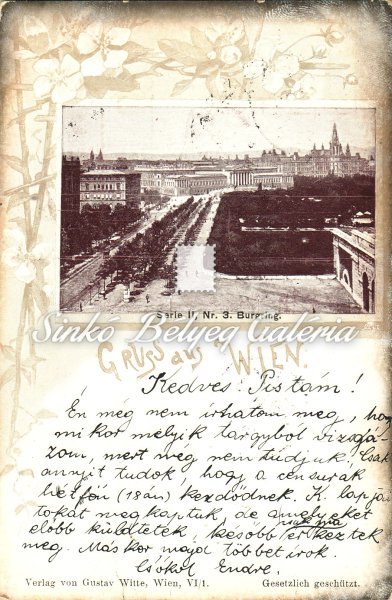 Serie II, Nr. 3. Burgring.
Sinkó Bélyeg Galéria
GRUSS aus WIEN.
Kedves Pistám!
Én még nem írhatom meg, hogy
mikor melyik tárgyból vizsgá-
zom, mert még nem tudjuk! Csak
annyit tudok, hogy a censurák
hétfőn (18án) kezdődnek. K. lapja-
tokat megkaptuk, de amelyeket
előbb küldtetek, később csak ma érkeztek
meg. Máskor majd többet írok.
Csókol Endre.
Verlag von Gustav Witte, Wien, VI/1.
Gesetzlich geschützt.